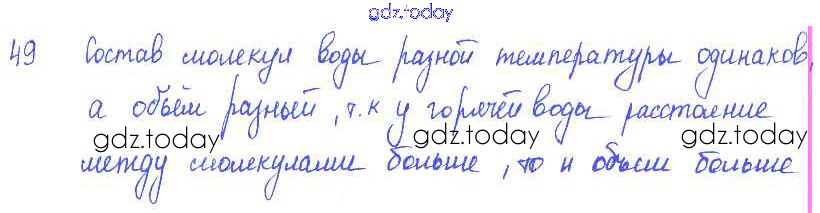 gdz.today
49 Состав молекул воды разной температуры одинаков,
а объём разный, т.к у горячей воды расстояние
gdz.today gdz.today gdz.today
между молекулами больше, то и объем больше